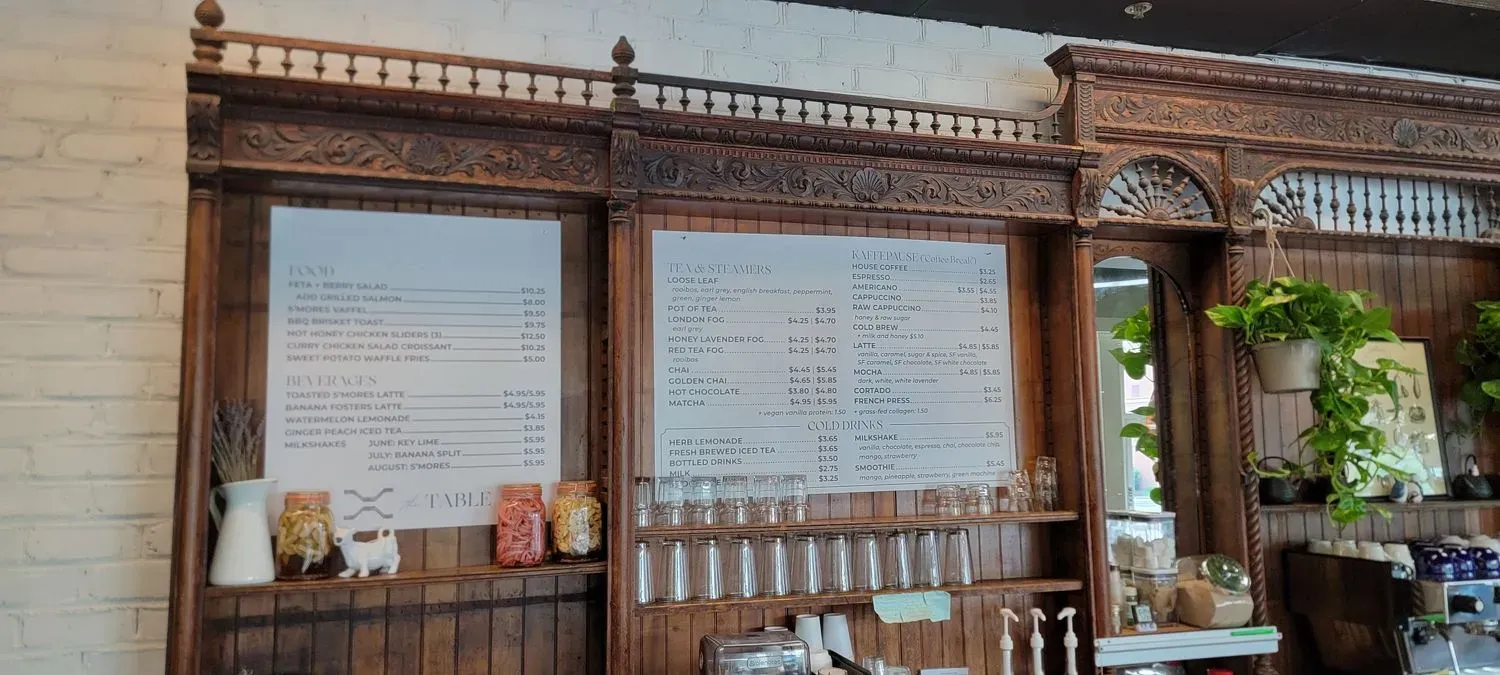 FOOD
FETA + BERRY SALAD $10.25
ADD GRILLED SALMON $8.00
S'MORES VAFFEL $9.50
BBQ BRISKET TOAST $9.75
HOT HONEY CHICKEN SLIDERS (3) $12.50
CURRY CHICKEN SALAD CROISSANT $10.25
SWEET POTATO WAFFLE FRIES $5.00
BEVERAGES
TOASTED S'MORES LATTE $4.95/5.95
BANANA FOSTERS LATTE $4.95/5.95
WATERMELON LEMONADE $4.15
GINGER PEACH ICED TEA $3.85
MILKSHAKES JUNE: KEY LIME $5.95
JULY: BANANA SPLIT $5.95
AUGUST: S'MORES $5.95
the TABLE
TEA & STEAMERS
LOOSE LEAF
rooibos, earl grey, english breakfast, peppermint,
green, ginger lemon
POT OF TEA $3.95
LONDON FOG $4.25 | $4.70
earl grey
HONEY LAVENDER FOG $4.25 | $4.70
RED TEA FOG $4.25 | $4.70
rooibos
CHAI $4.45 | $5.45
GOLDEN CHAI $4.65 | $5.85
HOT CHOCOLATE $3.80 | $4.80
MATCHA $4.95 | $5.95
+ vegan vanilla protein: 1.50
KAFFEPAUSE ('Coffee Break')
HOUSE COFFEE $3.25
ESPRESSO $2.65
AMERICANO $3.55 | $4.55
CAPPUCCINO $3.85
RAW CAPPUCCINO $4.10
honey & raw sugar
COLD BREW $4.45
+ milk and honey $5.10
LATTE $4.85 | $5.85
vanilla, caramel, sugar & spice, SF vanilla,
SF caramel, SF chocolate, SF white chocolate
MOCHA $4.85 | $5.85
dark, white, white lavender
CORTADO $3.45
FRENCH PRESS $6.25
+ grass-fed collagen: 1.50
COLD DRINKS
HERB LEMONADE $3.65
FRESH BREWED ICED TEA $3.65
BOTTLED DRINKS $3.50
MILK $2.75
$3.25
MILKSHAKE $5.95
vanilla, chocolate, espresso, chai, chocolate chip,
mango, strawberry
SMOOTHIE $5.45
mango, pineapple, strawberry, green machine